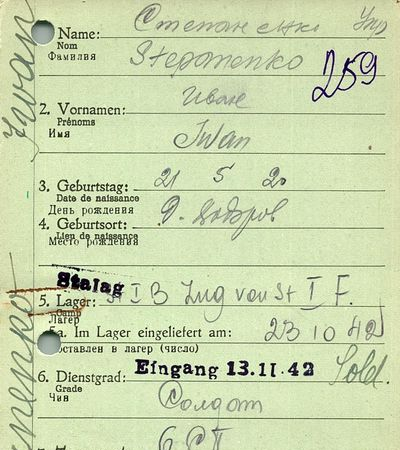 Name: Степаненко Укр
Nom
Фамилия Stepanenko
259
2. Vornamen: Иван
Prénoms
Имя Iwan
3. Geburtstag: 21 5 20
Date de naissance
День рождения
4. Geburtsort: д. Бобров
Lieu de naissance
Место рождения
Stalag
5. Lager: St I B Zug von St I F.
Camp
Лагер
5a. Im Lager eingeliefert am: 23 10 42
оставлен в лагер (число)
Eingang 13.11.42
6. Dienstgrad: Sold.
Grade
Чин Солдат
Iwan
nenko